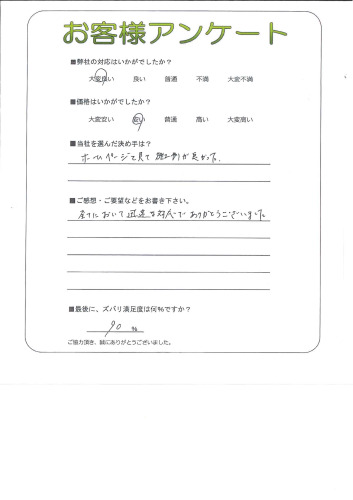 お客様アンケート
■弊社の対応はいかがでしたか？
大変良い 良い 普通 不満 大変不満
■価格はいかがでしたか？
大変安い 安い 普通 高い 大変高い
■当社を選んだ決め手は？
ホームページで見て 施工例が良かった。
■ご感想・ご要望などをお書き下さい。
全てにおいて迅速な対応でありがとうございました
■最後に、ズバリ満足度は何%ですか？
90 %
ご協力頂き、誠にありがとうございました。